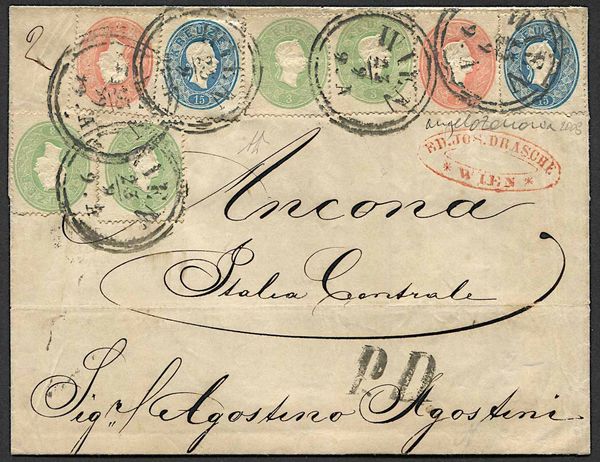 2
KREUZER
15
3
3
15
WIEN
WIEN
ED. JOS. DRASCHE
* WIEN *
3
3
WIEN
Ancona
Italia Centrale
P.D.
Sigr Agostino Agostini